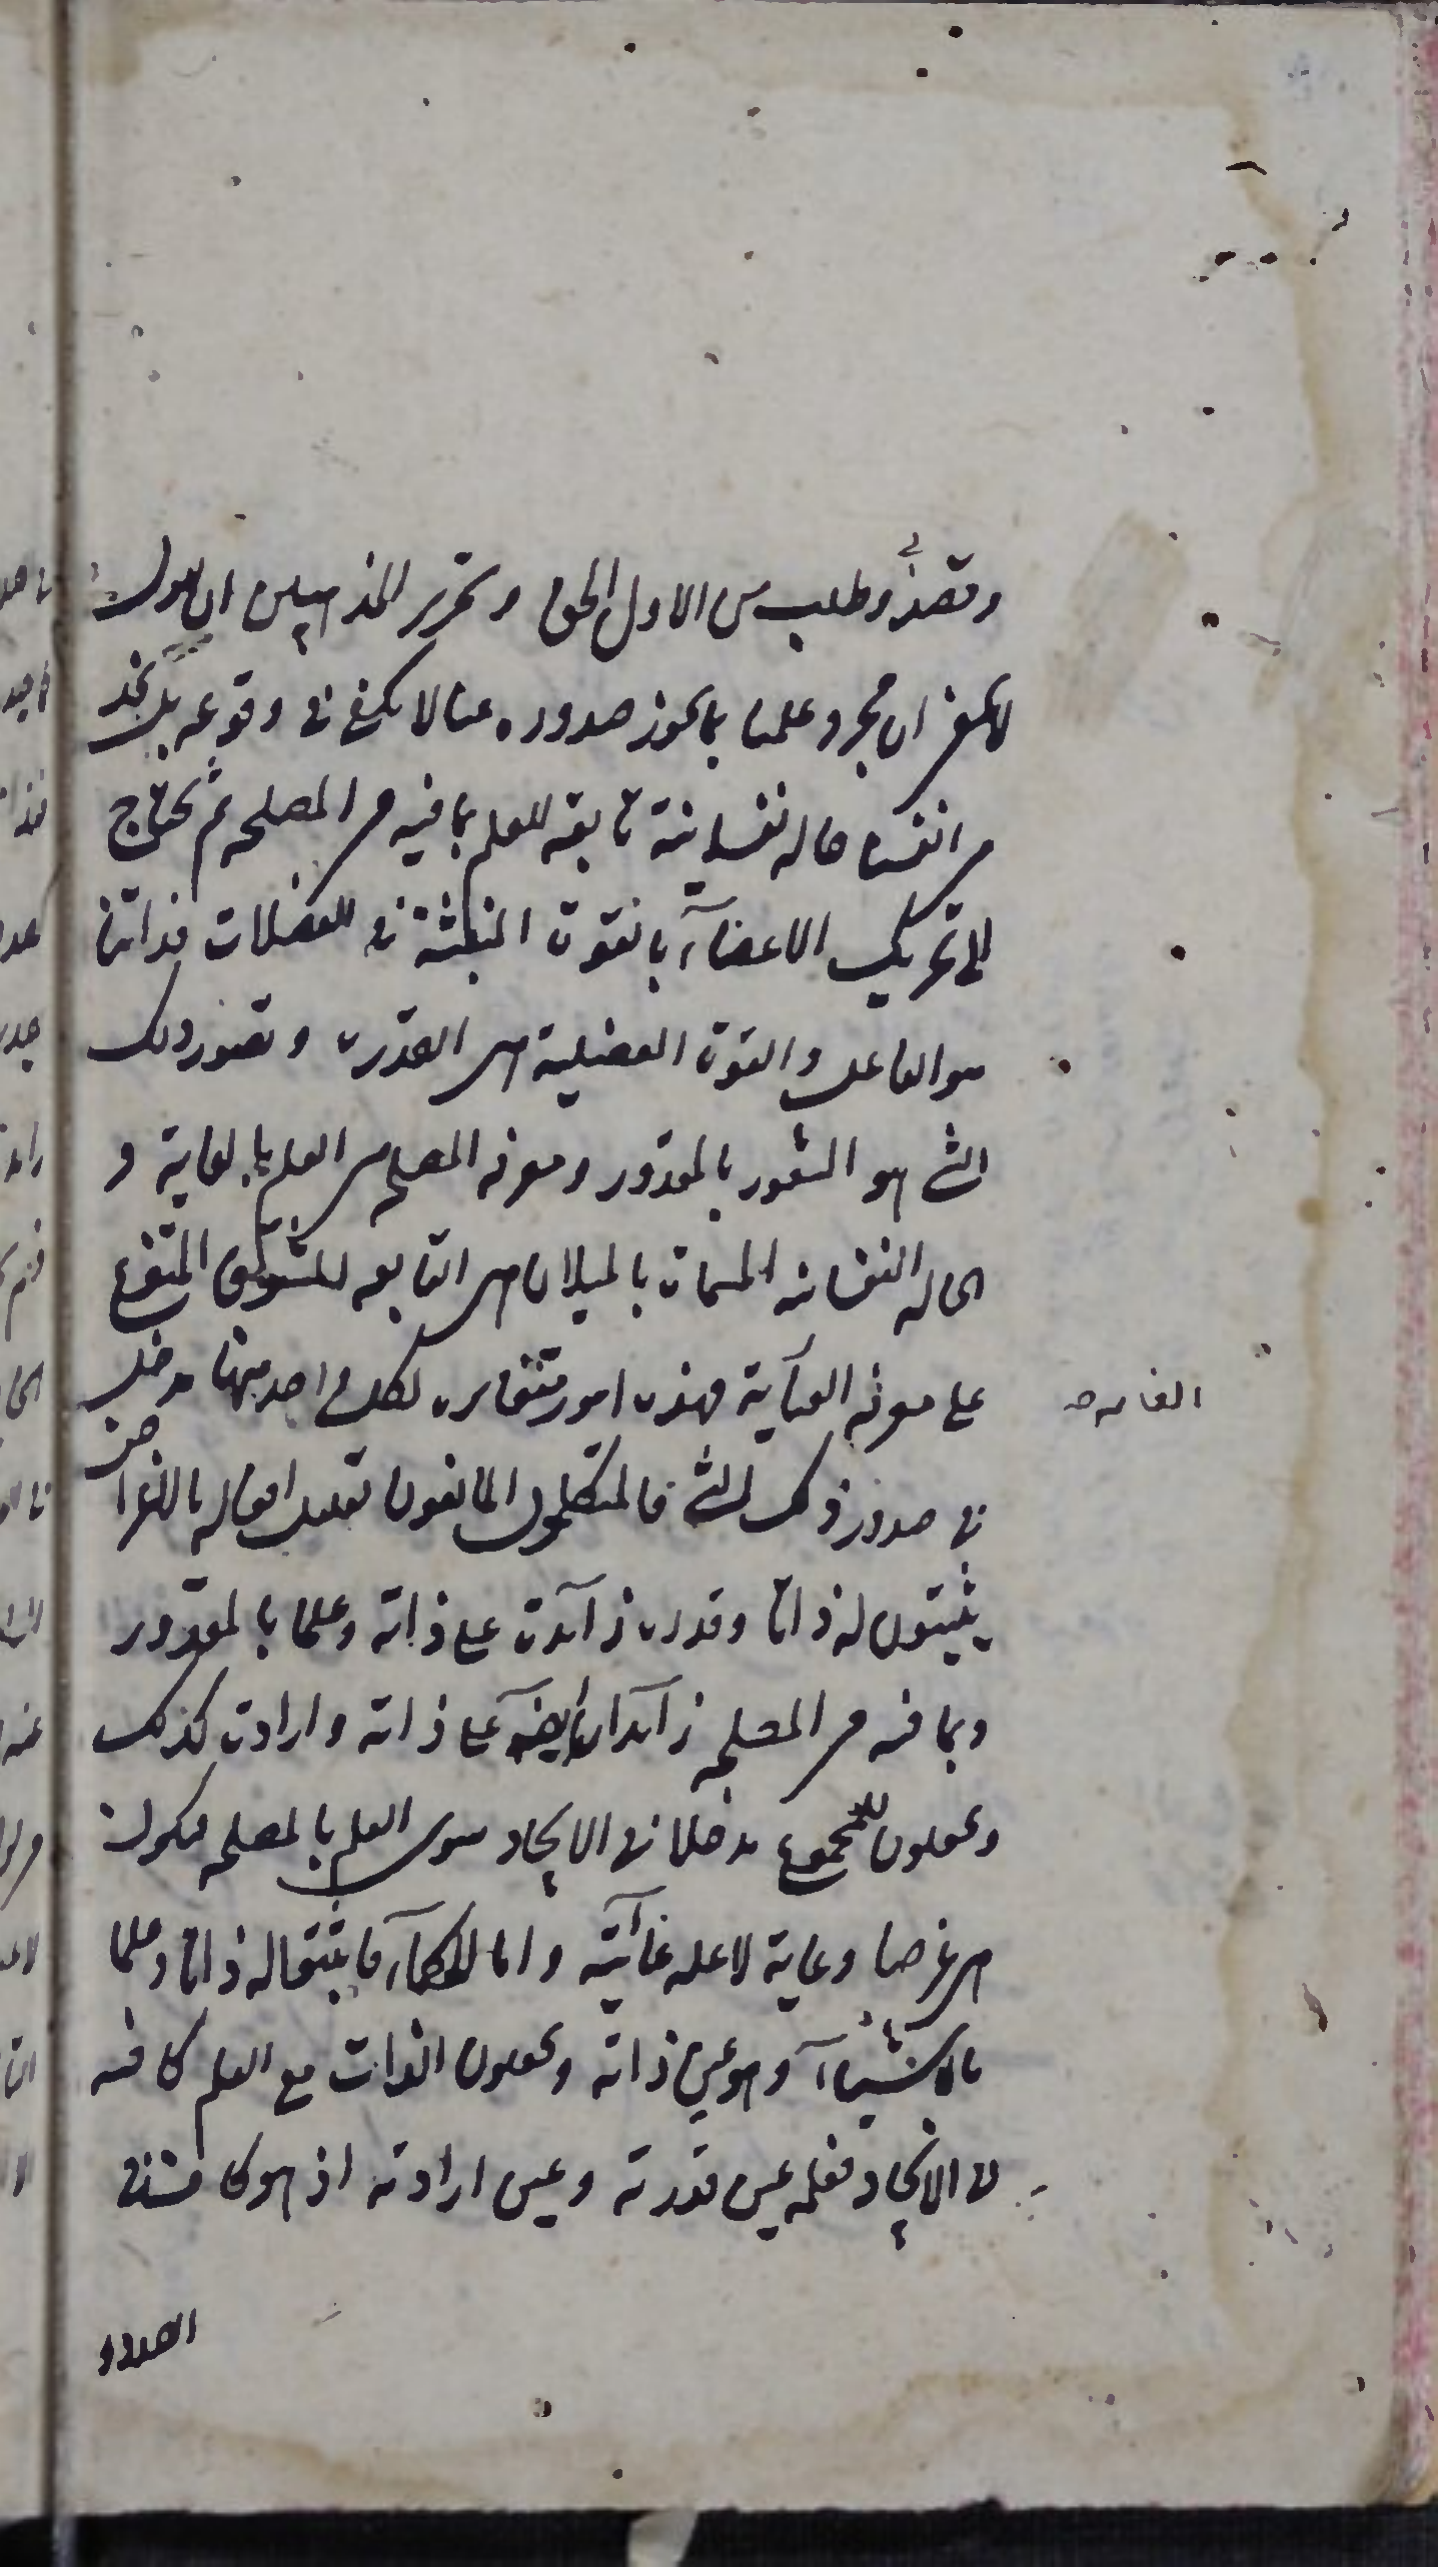 وقصد وطلب من الاول الحق وتحرير المذهبين ان يقول
لا يخفى ان مجرد علمنا بما يجوز صدوره عنا لا يكفى فى وقوعه بل نجد
من انفسنا حاله نفسانية تابعه للعلم بما فيه من المصلحه ثم نحتاج
الى تحريك الاعضاء بالقوة المنبثة فى العضلات فذاتنا
هو الفاعل والقوة العضلية هى القدرة وتصور ذلك
الشئ هو الشعور بالمقدور ومعرفه المصلحه هى العلم بالغاية و
الحاله النفسانيه المسماة بالميلان هى التابعه للشوق المتفرع
على معرفه الغاية فهذه امور متغايره لكل واحد منها مدخل
الغايه صح
فى صدور ذلك الشئ فالمتكلمون المانعون تعليل افعاله بالاغراض
يثبتون له ذاتا وقدرة زآئدة على ذاته وعلما بالمقدور
وبما فيه من المصلحه زآئدا ايضا على ذاته وارادة كذلك
ويجعلون للمجموع مدخلا فى الايجاد سوى العلم بالمصلحه فيكون
هى غرضا وغاية لا علة غائية واما الحكماء فاثبتوا له ذاتا وعلما
بالاشياء وهو عين ذاته ويجعلون الذات مع العلم كافيه
فى الايجاد فعلمه عين قدرته وعين ارادته اذ هو كاف فى
الصدور